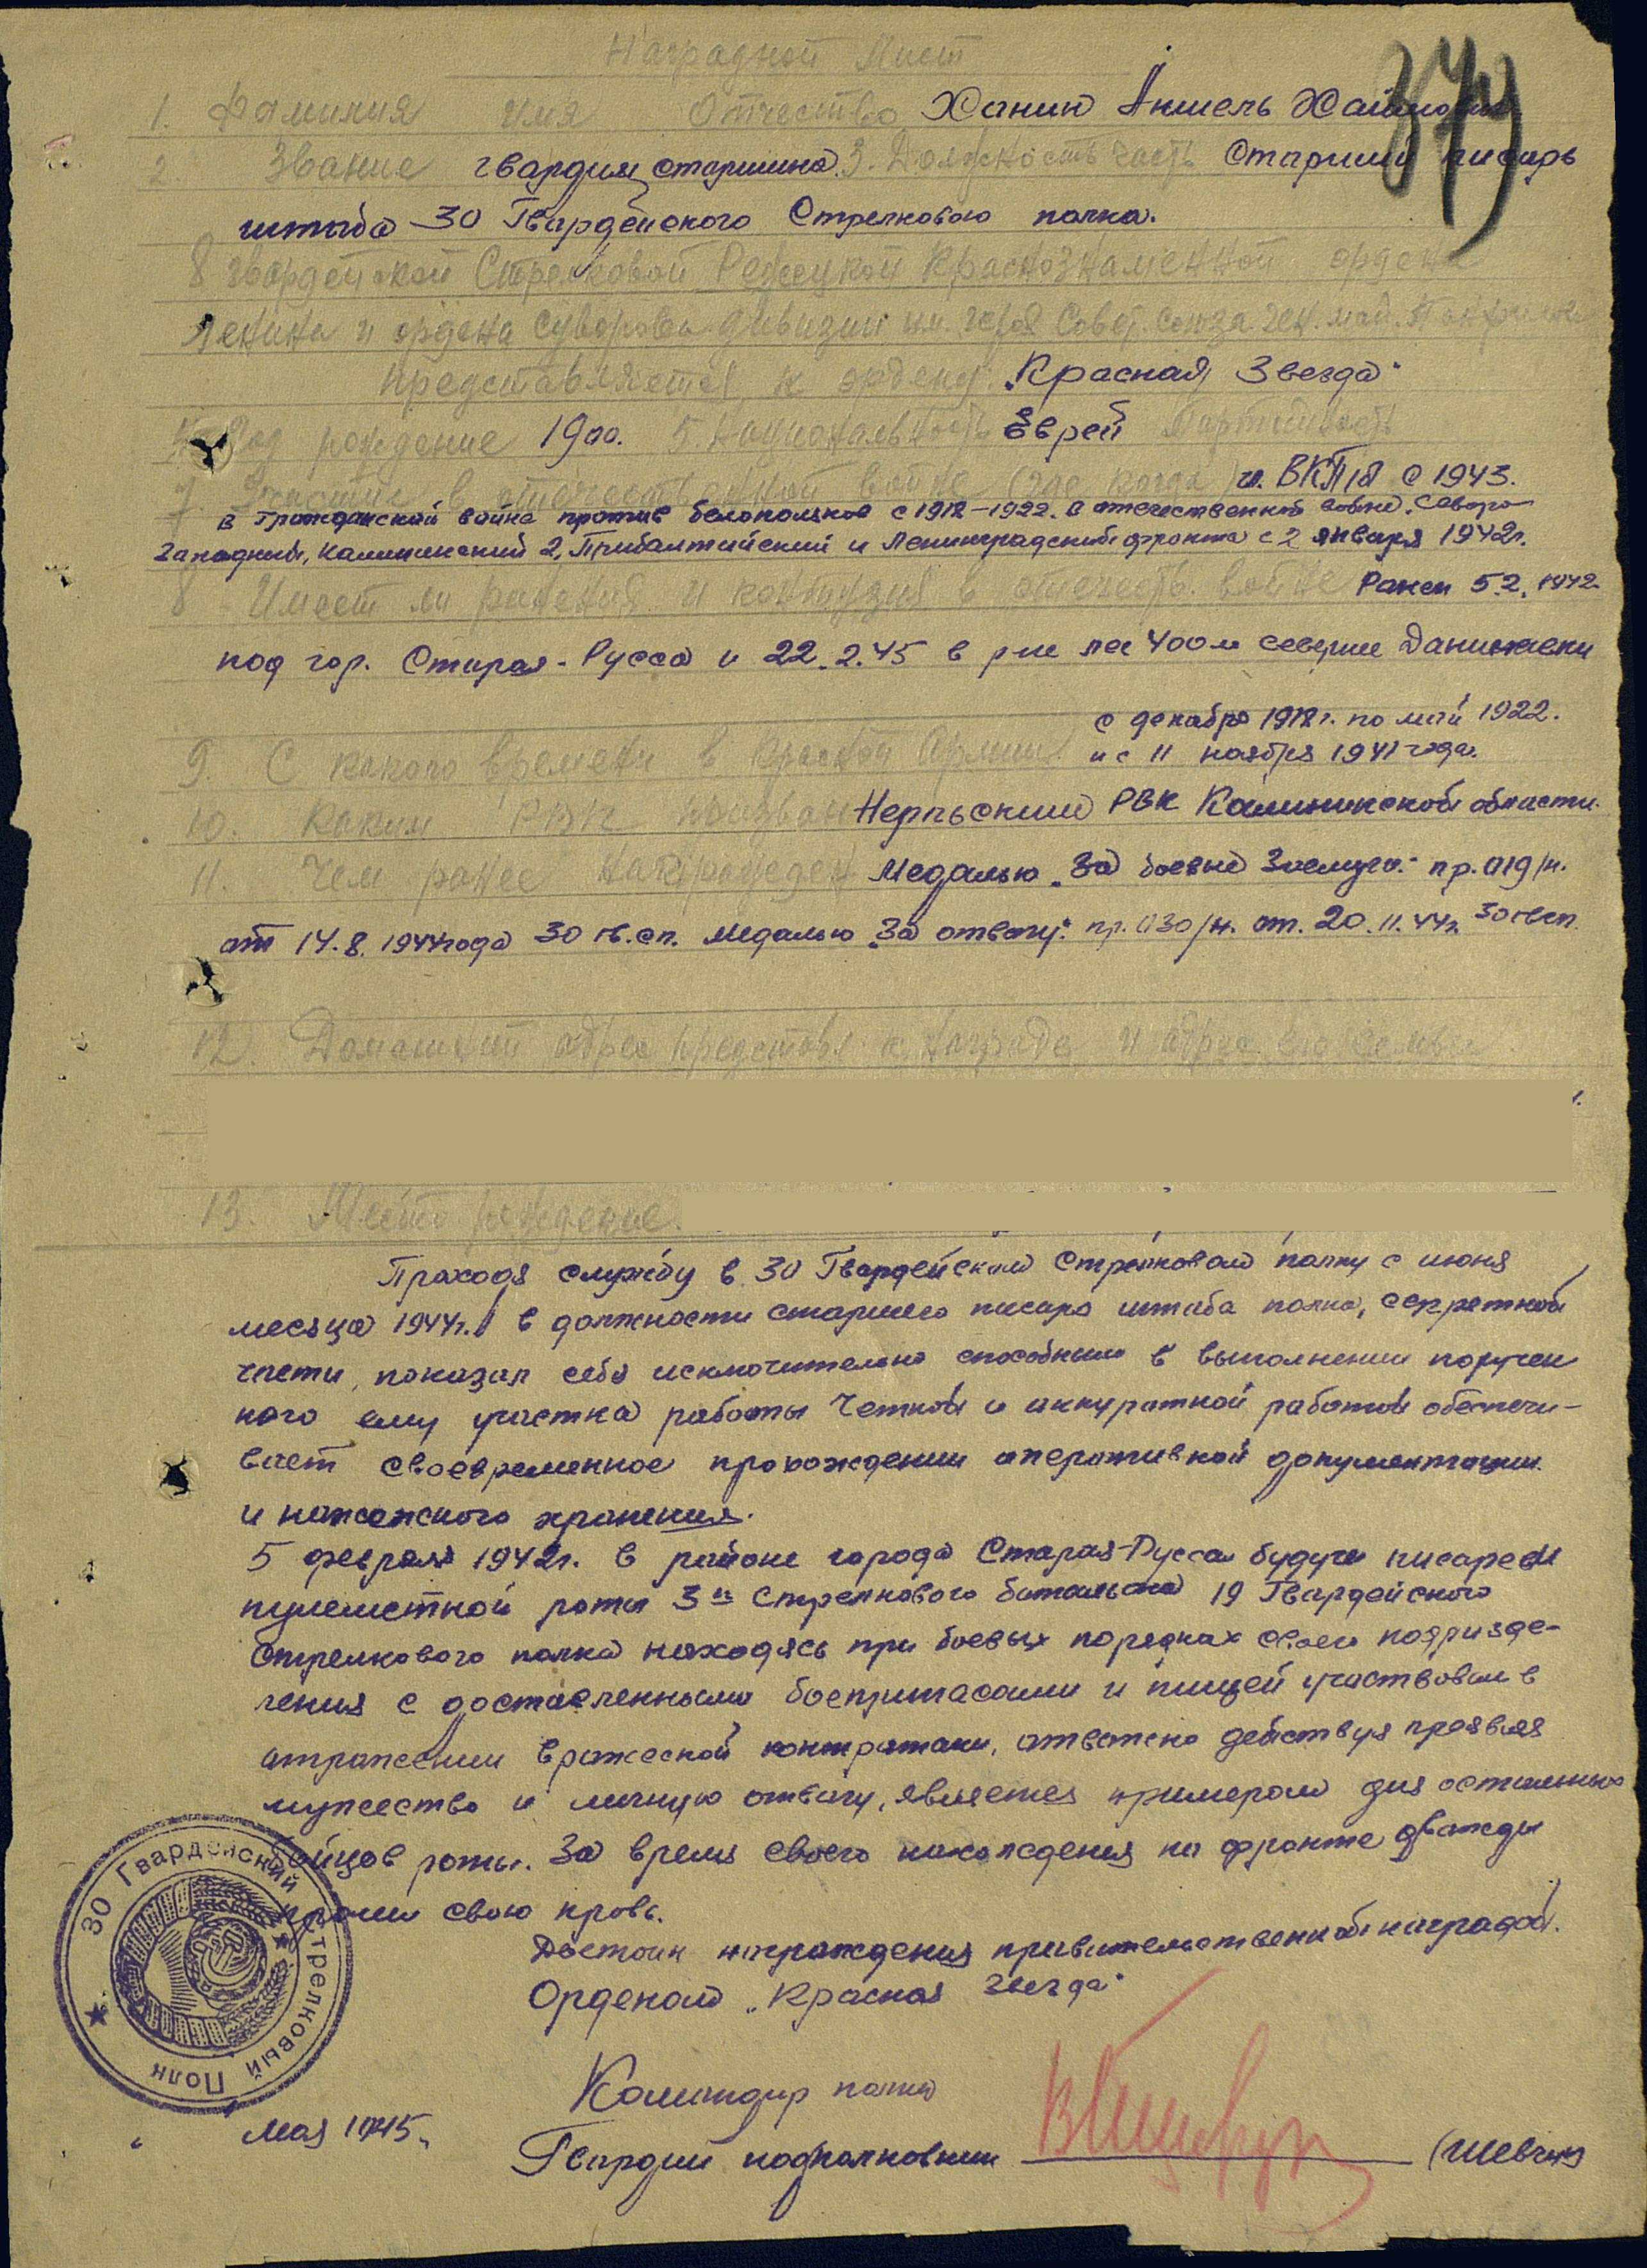 379
Наградной Лист
1. Фамилия Имя Отчество Ханин Аншель Хаймович
2. Звание гвардии старшина 3. Должность часть Старший писарь
штаба 30 Гвардейского Стрелкового полка.
8 гвардейской Стрелковой Режецкой Краснознаменной ордена
Ленина и ордена Суворова дивизии им. героя Совет. Союза ген. май. Панфилова
представляется к ордену: „Красная Звезда"
4. Год рождение 1900. 5. Национальность Еврей Партийность
7. Участие в отечественной войне (где когда) чл. ВКП/б с 1943.
в Гражданской войне против белополяков с 1918-1922. в отечественной войне. Северо-
Западный, Калининский 2, Прибалтийский и Ленинградский фронта с 2 января 1942г.
8 Имеет ли ранения и контузия в отечеств. войне Ранен 5.2.1942
под гор. Старая-Русса и 22.2.45 в р-не лес 400 м севернее
9. С какого времени в Красной Армии с декабря 1918г. по май 1922.
и с 11 ноября 1941 года.
10. Каким РВК призван Нерльским РВК Калининской области.
11 Чем ранее награжден Медалью „За боевые Заслуги" пр. 019/н.
от 14.8.1944 года 30 гв.сп. медалью „За отвагу" пр. 030/н. от. 20.11.44г. 30 гвсп
12. Домашний адрес представл. к награде и адрес его семьи
13. Место рождение.
Проходя службу в 30 Гвардейском Стрелковом полку с июня
месяца 1944г. в должности старшего писаря штаба полка, секретной
части, показал себя исключительно способным в выполнении поручен
ного ему участка работы Четкой и аккуратной работой обеспечи-
вает своевременное прохождении оперативной документации
и хранения.
5 февраля 1942г. в районе города Старая-Русса будучи писарем
пулеметной роты 3го Стрелкового батальона 19 Гвардейского
Стрелкового полка находясь при боевых порядках своего подразде-
ления с доставленными боеприпасами и пищей участвовал в
отражении вражеской контратаки, отважно действуя проявляя
мужество и личную отвагу, является примером для остальных
бойцов роты. За время своего нахождения на фронте дважды
пролил свою кровь.
Достоин награждения правительственной наградой.
Орденом „Красная Звезда"
30 Гвардейский Стрелковый Полк
Командир полка
" " мая 1945г.
Гвардии подполковник (Шевчук)